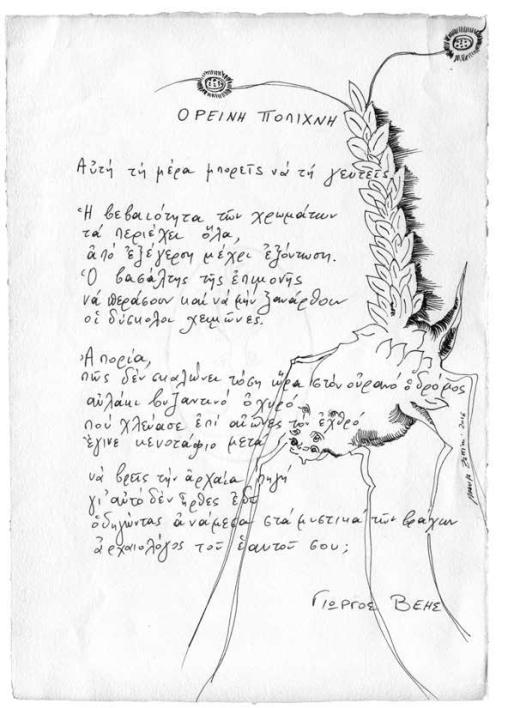 ΟΡΕΙΝΗ ΠΟΛΙΧΝΗ
Αὐτή τή μέρα μπορεῖς νά τή γευτεῖς
Ἡ βεβαιότητα τῶν χρωμάτων
τά περιέχει ὅλα,
ἀπό ἐξέγερση μέχρι ἐξόντωση.
Ὁ βασάλτης τῆς ἐπιμονῆς
νά περάσουν καί νά μήν ξανάρθουν
οἱ δύσκολοι χειμῶνες.
Ἀπορία,
πῶς δέν σκαλώνει τόση ὥρα στόν οὐρανό ὁ δρόμος
αὐλάκι βυζαντινό ὀχυρό
πού χλεύασε ἐπί αἰῶνες τόν ἐχθρό
ἔγινε κενοτάφιο μετά
νά βρεῖς τήν ἀρχαία πηγή
γι' αὐτό δέν ἦρθες ἐδῶ
ὁδηγώντας ἀνάμεσα στά μυστικά τῶν βράχων
ἀρχαιολόγος τοῦ ἑαυτοῦ σου;
ΓΙΩΡΓΟΣ ΒΕΗΣ